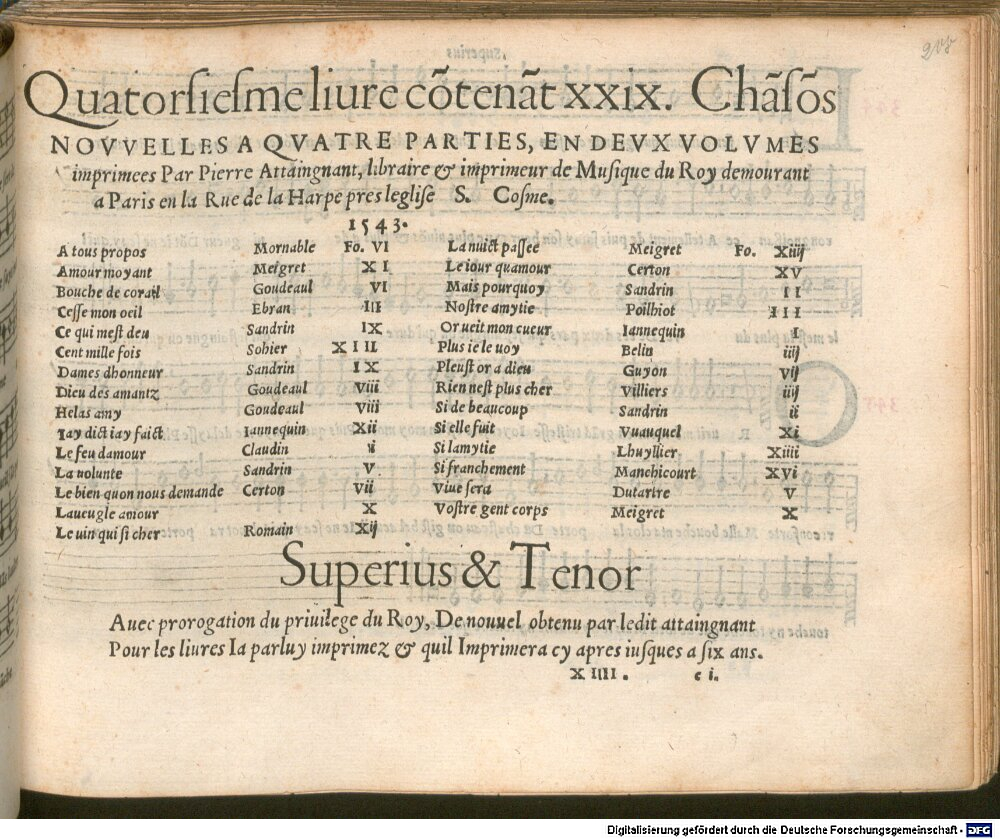 208
Quatorsiesme liure cõtenãt xxix. Chãsõs
NOVVELLES A QVATRE PARTIES, EN DEVX VOLVMES
imprimees Par Pierre Attaingnant, libraire & imprimeur de Musique du Roy demourant
a Paris en la Rue de la Harpe pres leglise S. Cosme.
1543.
A tous propos Mornable Fo. VI
Amour moyant Meigret XI
Bouche de corail Goudeaul VI
Cesse mon oeil Ebran III
Ce qui mest deu Sandrin IX
Cent mille fois Sohier XIII
Dames dhonneur Sandrin IX
Dieu des amantz Goudeaul Viii
Helas amy Goudeaul Viii
Iay dict iay faict Iannequin Xii
Le feu damour Claudin ii
La uolunte Sandrin V
Le bien quon nous demande Certon Vii
Laueugle amour X
Le uin qui si cher Romain Xij
La nuict passee Meigret Fo. Xiiij
Le iour quamour Certon XV
Mais pourquoy Sandrin II
Nostre amytie Poilhiot III
Or ueit mon cueur Iannequin I
Plus ie le uoy Belin iiij
Pleust or a dieu Guyon Vij
Rien nest plus cher Villiers iiij
Si de beaucoup Sandrin ii
Si elle fuit Vuauquel Xi
Si lamytie Lhuyllier Xiiii
Si franchement Manchicourt XVi
Viue sera Dutartre V
Vostre gent corps Meigret X
Superius & Tenor
Auec prorogation du priuilege du Roy, De nouuel obtenu par ledit attaingnant
Pour les liures Ia parluy imprimez & quil Imprimera cy apres iusques a six ans.
XIIII. c i.
Digitalisierung gefördert durch die Deutsche Forschungsgemeinschaft - DFG